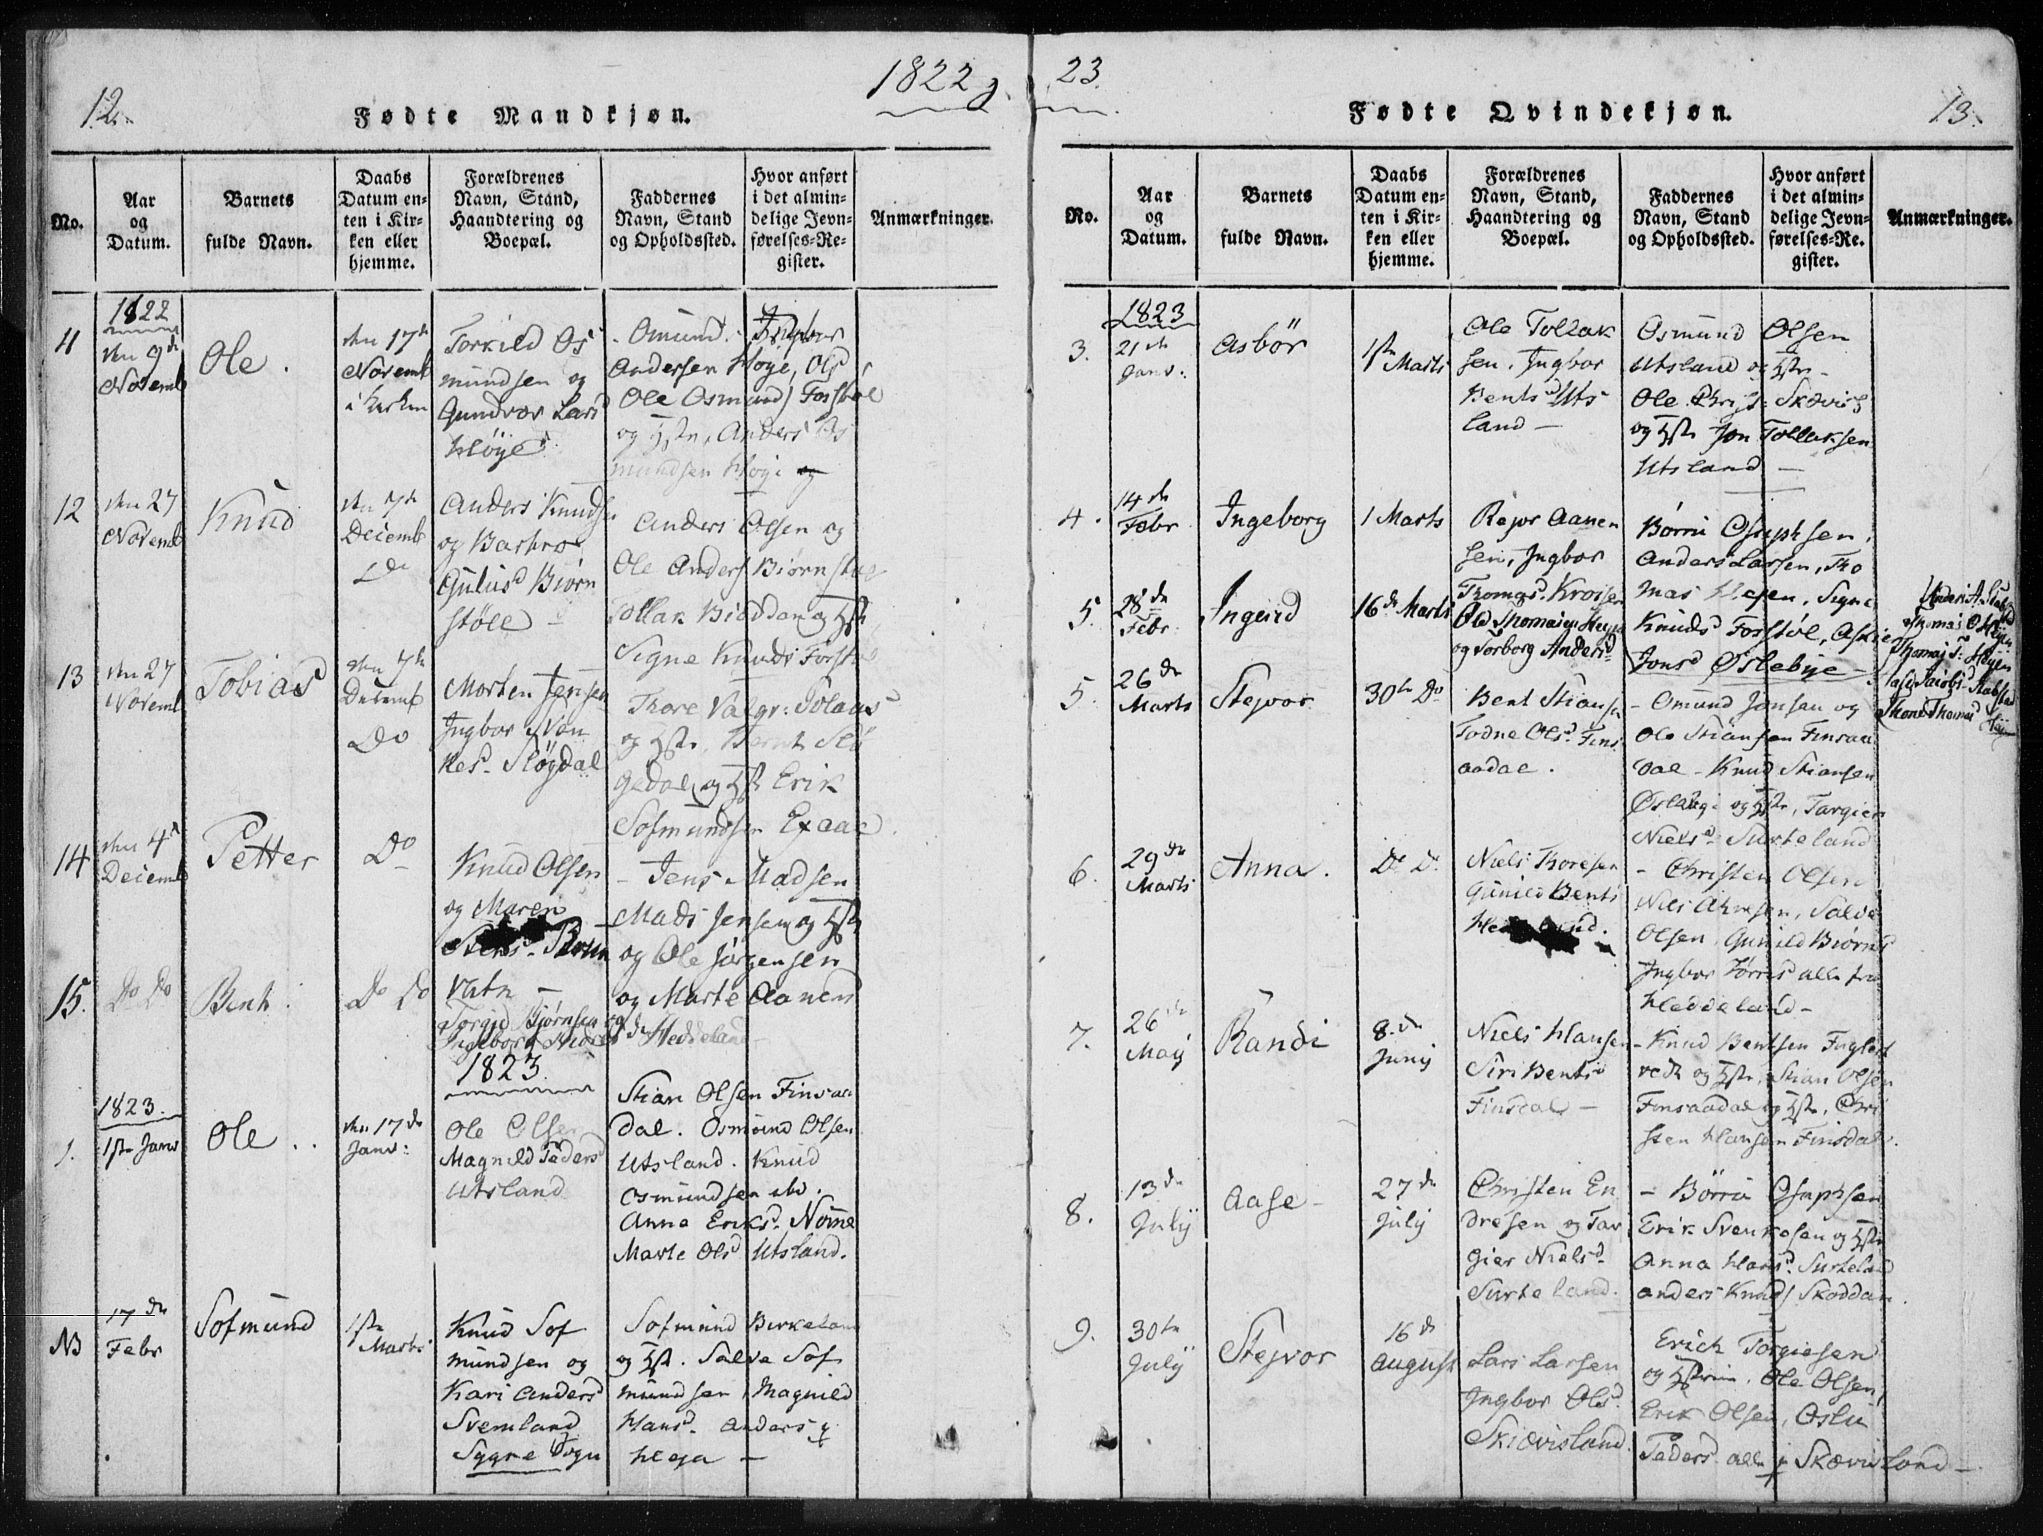 12.
1822 23.
Fødte Mandkjøn.
No.
Aar
og
Datum.
Barnets
fulde Navn.
Daabs
Datum en-
ten i Kir-
ken eller
hjemme.
Forældrenes
Navn, Stand,
Haandtering og
Boepæl.
Faddernes
Navn, Stand
og Opholdssted.
Hvor anført
i det almin-
delige Jevn-
førelses-Re-
gister.
Anmærkninger.
11
1822
den 9de
Novemb
Ole.
den 17de
Novemb
i Kirken
Torkild Os
mundsen og
Gundvor Larsd
Høye
Omund
Andersen Høye, Ols
Ole Osmunds Fosstøl
og Hstr, Anders Os
mundsen Høye
12
den 27
Novemb
Knud
den 7de
Decemb
Do
Anders Knudse
og Barbro
Gulusd Biørn
støll
Anders Olsen og
Ole Anders Biørnstøl
Tollak Bioddan og Hstr
Signe Knuds Forstøl
13
den 27
Novemb
Tobias
den 7de
Decemb
Do
Morten Jensen
Ingbor Non
Nes. Sløgdal
Thore Valgr: Tolaas
og Hstr, Bernt Slø
gedal og Hstr Erik
Sofmundsen Exaae
14
den 4de
Decemb
Petter
Do
Knud Olsen
og Maren
vatn
Jens Madsen
Mads Jensen og Hstr
og Ole Jørgensen
og Marte Aanens
15.
Do Do
Bent
Do Do
Torgid Bjørnsen og
Ingeborg
Heddeland
1823
1823.
1.
1ste Janv
Ole
den 17de
Janv:
Ole Olsen
Magnild Tadersd
Utsland
Stian Olsen Finsaa
dal. Osmund Olsen
Utsland. Knud
Osmundsen ibd.
Anne Eriksd. Nome
Marte Olsd Utsland.
N3
17de
Febr
Sofmund
1ste
Marts
Knud Sof
mundsen og
Kari Andersd
Svemland
Sygne Sogn
Sofmund Birkeland
og Hstr. Salve Sof
mundsen, Magnild
Hansd. Anders
Hega
Fødte Qvindekjøn.
13.
No.
Aar
og
Datum.
Barnets
fulde Navn.
Daabs
Datum en-
ten i Kir-
ken eller
hjemme.
Forældrenes
Navn, Stand,
Haandtering og
Boepæl.
Faddernes
Navn, Stand
og Opholdssted.
Hvor anført
i det almin-
delige Jevn-
førelses-Re-
gister.
Anmærkninger.
3.
1823
21de
Janv:
Asbör
1ste Marts
Ole Tollak
sen, Ingbor
Bentsd Uts
land
Osmund Olsen
Utsland og Hstr
Ole Chrisf: Skævis
og Hstr Jon Tollaksen
Utsland
4.
14de
Febr
Ingeborg
1 Marts
Rejor Aanen
sen, Ingbor
Thomasd. Krossen
Börru Osuphsen,
Anders Larsen, Tho
mas Hegen, Signe
Knudsd Forstøl,
Jonsd Østebye
5.
28de
Febr
Ingerid
16de Marts
Old Thomasen Hegen
og Torborg Andersd
Anders A. Stabstad
Thomas O. Hegen
Thomas T: Hegen
Aase Jacobs Stabstad
Thone Thomasd
5.
26de
Marts
Stejvor
30te Do
Bent Stiansen
Todne Olsd. Fins
aadal.
Omund Jonsen og
Ole Stiansen Finsaa
dal - Knud Stiansen
og Hstr, Targier
Nielsd Surteland
6.
29de
Marts
Anna.
Do Do
Niels Thoresen
Gunild Bents
Christen Olsen
Salve
Olsen, Gunild Biørns
Ingbor Tørris alle fra
Heddeland
7.
26de
Maij
Randi
8de
Junij
Niels Hansen
Siri Bentsd
Finsdal
Knud Bentsen Fuglest
vedt og Hstr, Stian Olsen
Finsaadal og Hstr, Chri
sten Hansen Finsdal.
8.
13de
Julij
Aase
27de
Julij
Christen En
dresen og Tar
gier Nielsd
Surteland.
Börru Osuphsen
Erik Svenkesen og Hstr
Anna Hansd. Surteland
Anders Knuds Skoddan.
9.
30te
Julij
Stejvor
16de
August
Lars Larsen
Ingbor Olsd.
Skiævisland.
Erich Torgiesen
og Hstrue, Ole Olsen,
Erik Olsen, Oslu
Tadersd. alle p Skævisland